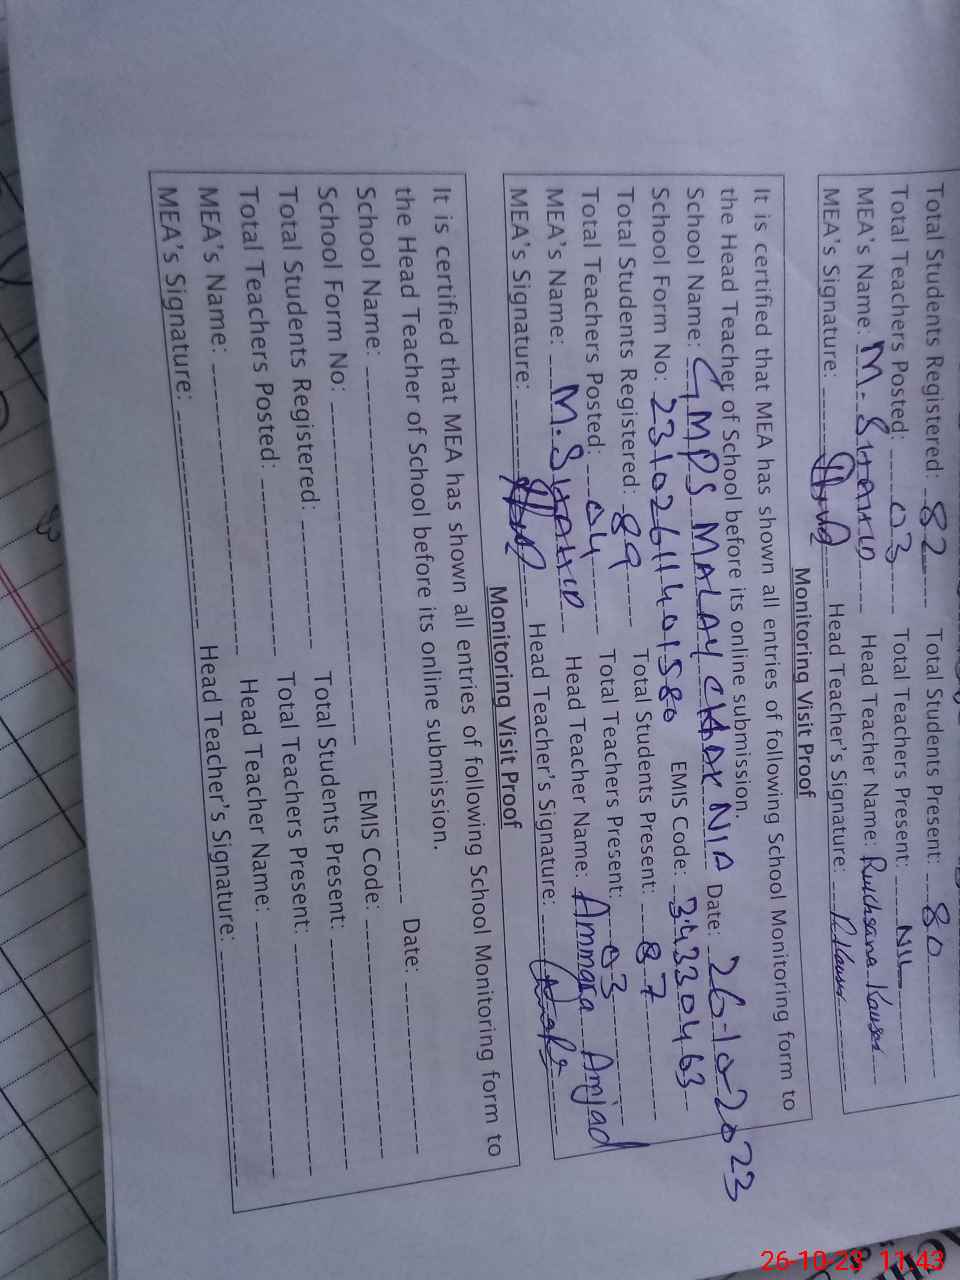 Total Students Registered: 82 Total Students Present: 80
Total Teachers Posted: 03 Total Teachers Present: NIL
MEA's Name: M. SHAHID Head Teacher Name: Rukhsana Kausar
MEA's Signature: Head Teacher's Signature: R. Kausar
Monitoring Visit Proof
It is certified that MEA has shown all entries of following School Monitoring form to
the Head Teacher of School before its online submission.
School Name: GMPS MALAY CHAK NIA Date: 26-10-2023
School Form No: 23102611401580 EMIS Code: 34330463
Total Students Registered: 89 Total Students Present: 87
Total Teachers Posted: 04 Total Teachers Present: 03
MEA's Name: M. SHAHID Head Teacher Name: Ammara Amjad
MEA's Signature: Head Teacher's Signature:
Monitoring Visit Proof
It is certified that MEA has shown all entries of following School Monitoring form to
the Head Teacher of School before its online submission.
School Name: Date:
School Form No: EMIS Code:
Total Students Registered: Total Students Present:
Total Teachers Posted: Total Teachers Present:
MEA's Name: Head Teacher Name:
MEA's Signature: Head Teacher's Signature:
26-10-23 11:43